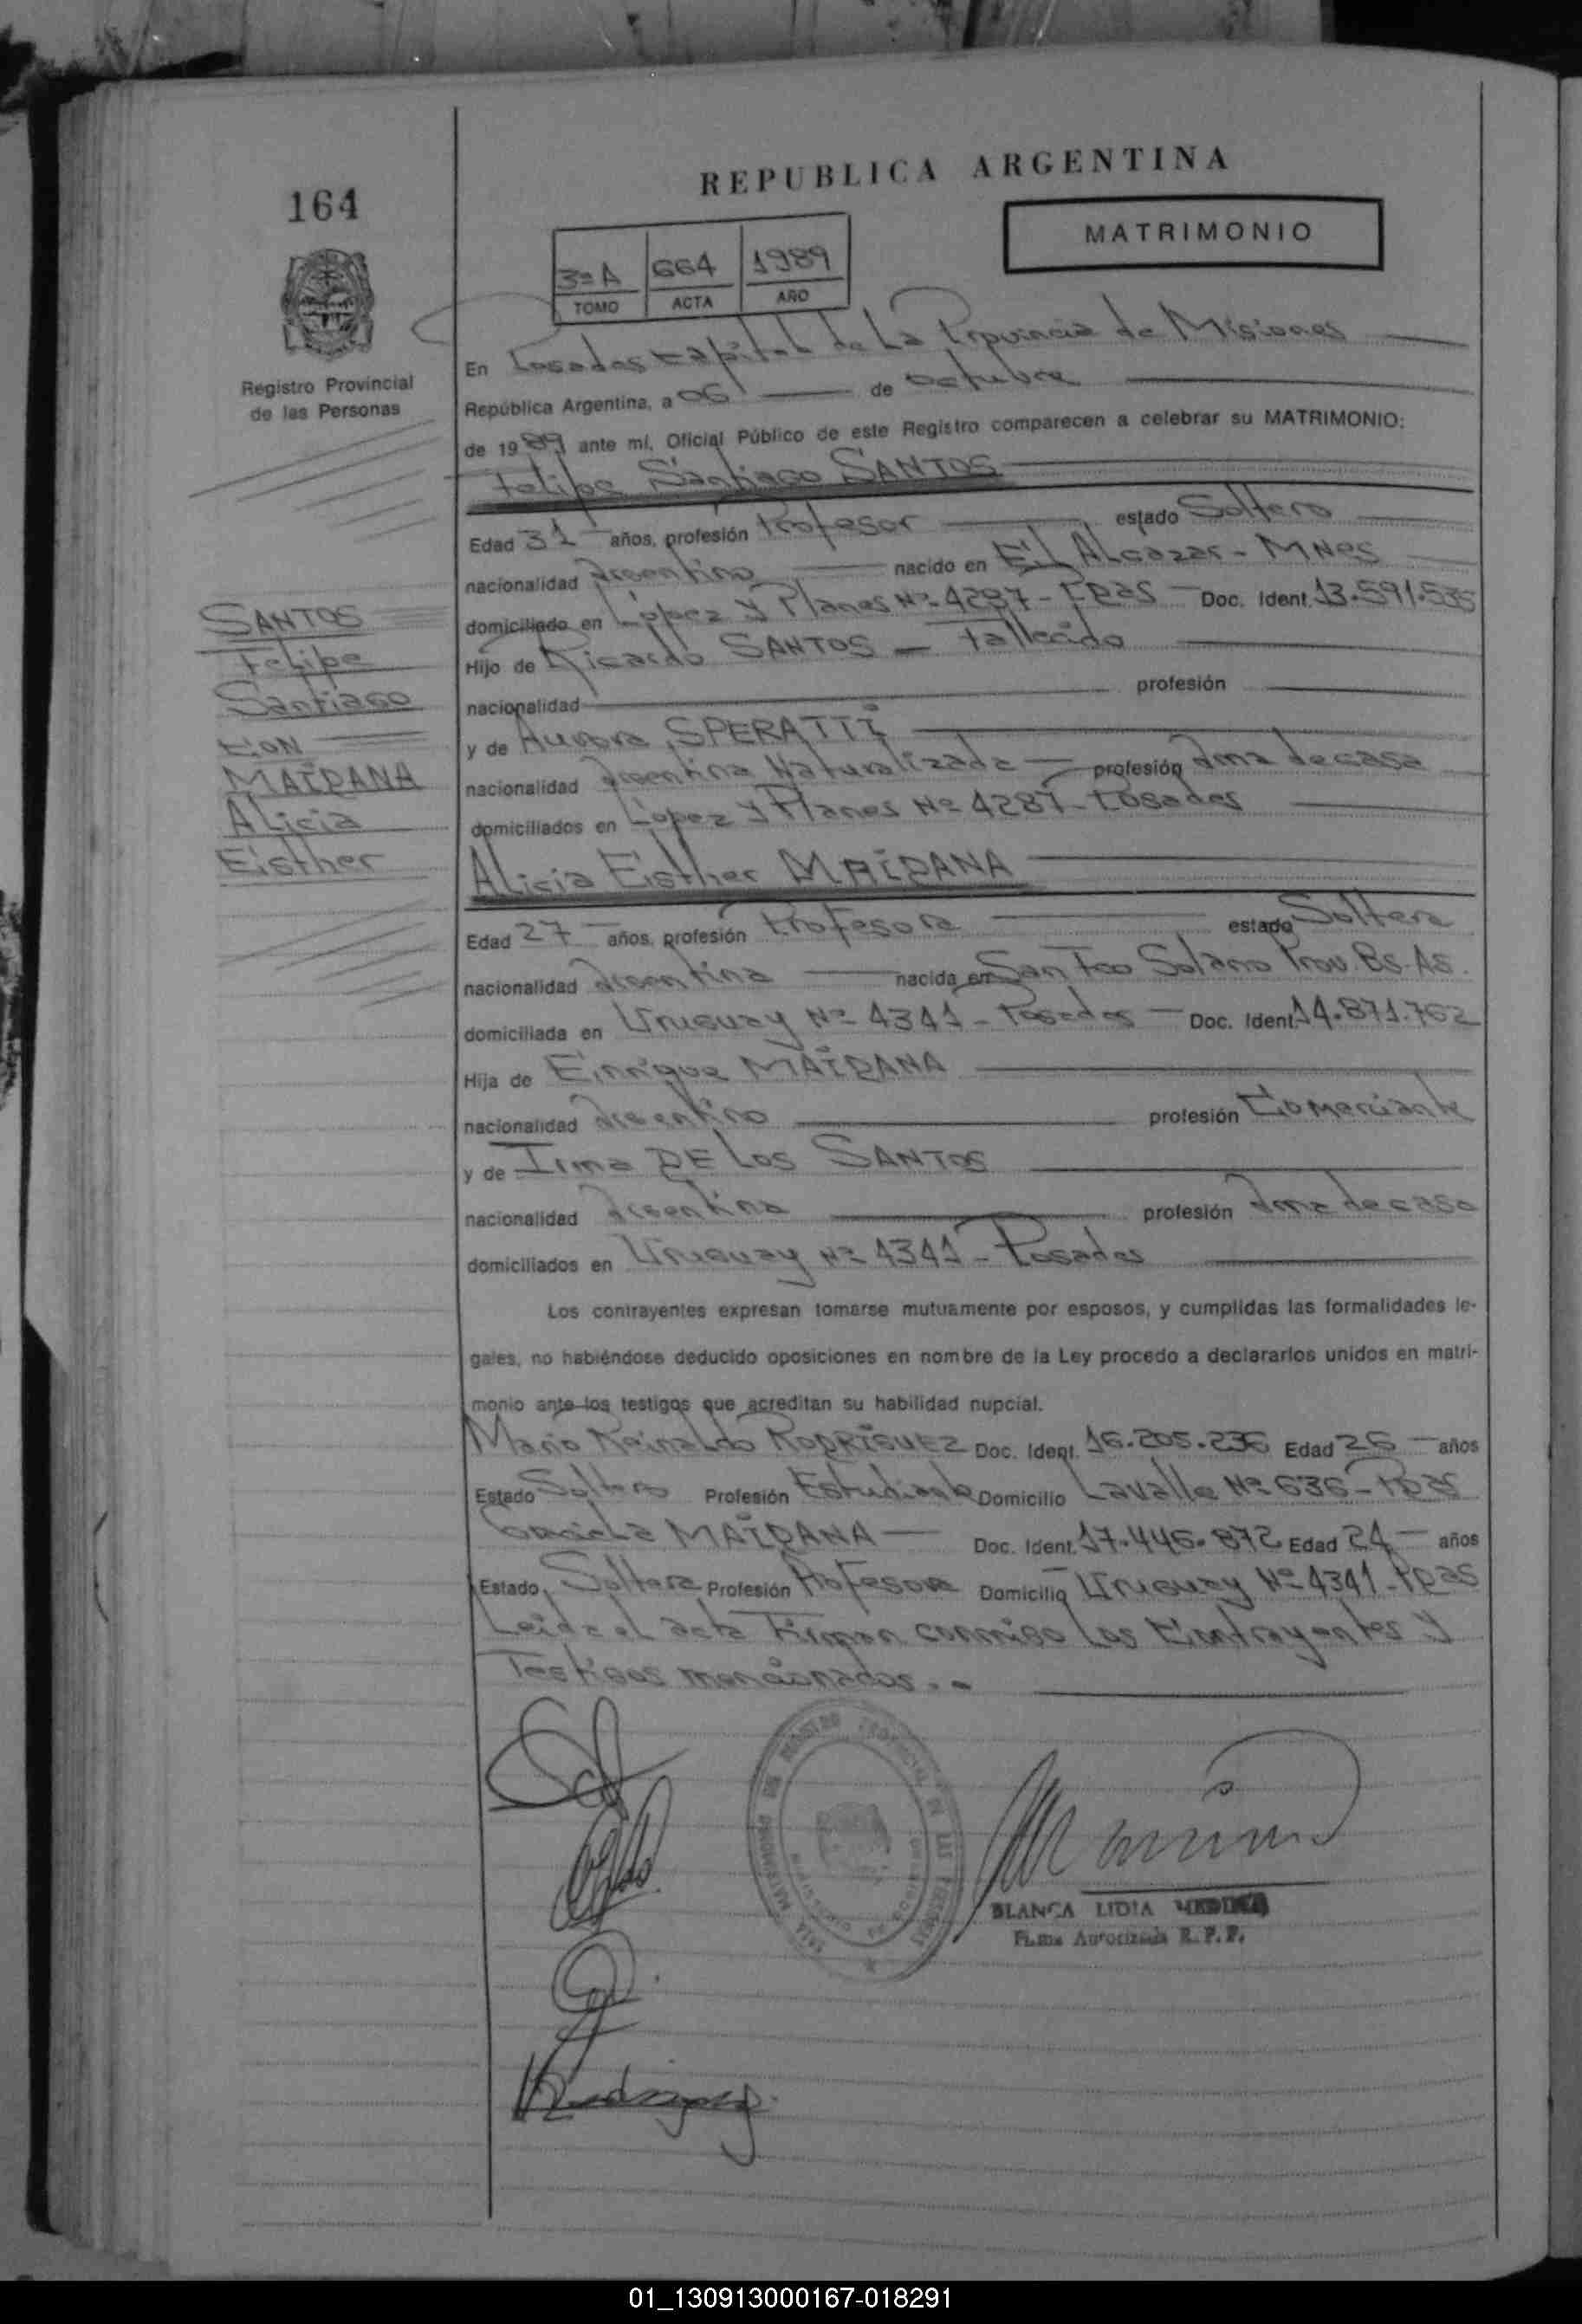 REPUBLICA ARGENTINA
164
MATRIMONIO
3ª A 664 1989
TOMO ACTA AÑO
Registro Provincial
de las Personas
En Posadas Capital de La Provincia de Misiones
República Argentina, a 06 de Octubre
de 1989 ante mí, Oficial Público de este Registro comparecen a celebrar su MATRIMONIO:
Felipe Santiago SANTOS
Edad 31 años, profesión Profesor estado Soltero
nacionalidad Argentino nacido en El Alcazar - Mnes
domiciliado en López y Planes Nº 4287 - Pdas Doc. Ident. 13.591.535
Hijo de Ricardo SANTOS - Fallecido
nacionalidad profesión
y de Aurora SPERATTI
nacionalidad Argentina Naturalizada profesión Ama de casa
domiciliados en López y Planes Nº 4287 - Posadas
SANTOS
Felipe
Santiago
CON
MAIDANA
Alicia
Esther
Alicia Esther MAIDANA
Edad 27 años, profesión Profesora estado Soltera
nacionalidad Argentina nacida en San Fco Solano Prov. Bs. As.
domiciliada en Uruguay Nº 4341 - Posadas Doc. Ident. 14.871.762
Hija de Enrique MAIDANA
nacionalidad Argentino profesión Comerciante
y de Irma DE LOS SANTOS
nacionalidad Argentina profesión Ama de casa
domiciliados en Uruguay Nº 4341 - Posadas
Los contrayentes expresan tomarse mutuamente por esposos, y cumplidas las formalidades le-
gales, no habiéndose deducido oposiciones en nombre de la Ley procedo a declararlos unidos en matri-
monio ante los testigos que acreditan su habilidad nupcial.
Mario Reinaldo RODRIGUEZ Doc. Ident. 16.205.236 Edad 26 años
Estado Soltero Profesión Estudiante Domicilio Lavalle Nº 636 - Pdas
Graciela MAIDANA Doc. Ident. 17.446.872 Edad 24 años
Estado Soltera Profesión Profesora Domicilio Uruguay Nº 4341 - Pdas
Leida el acta Firman conmigo Los Contrayentes y
Testigos mencionados.
BLANCA LIDIA MEDINA
Firma Autorizada R. P. P.
01_130913000167-018291